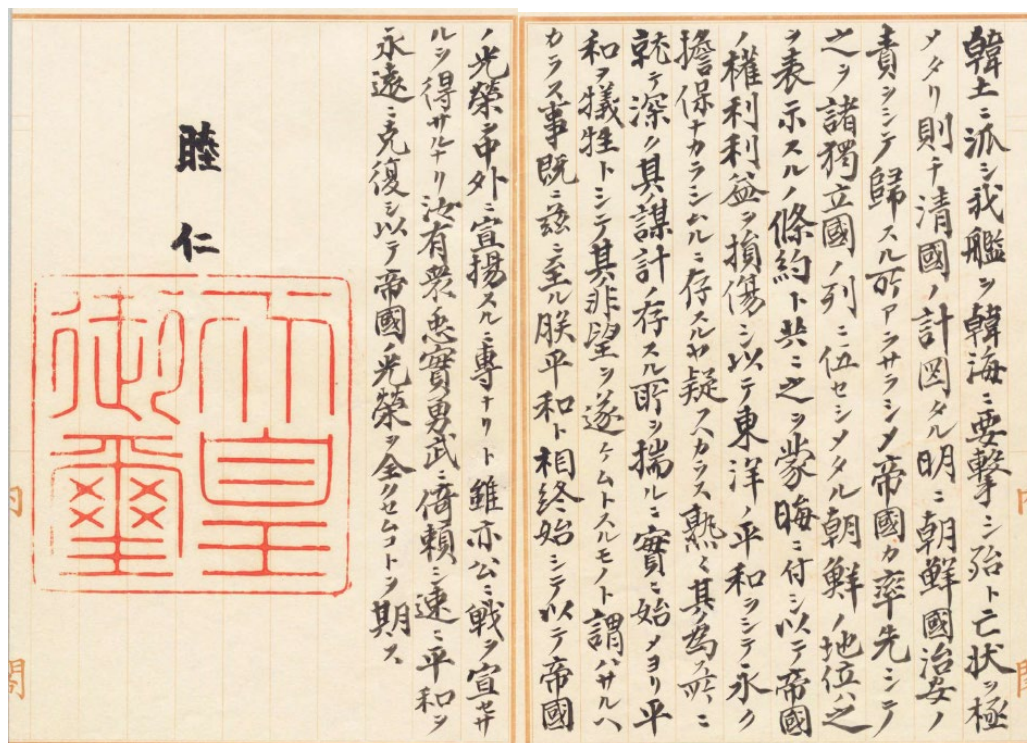 韓土ニ派シ我艦ヲ韓海ニ要撃シ殆ト亡状ヲ極
メタリ則チ清國ノ計図タル明ニ朝鮮國治安ノ
責ヲシテ歸スル所アラサラシメ帝國カ率先シテ
之ヲ諸獨立國ノ列ニ伍セシメタル朝鮮ノ地位ハ之
ヲ表示スルノ條約ト共ニ之ヲ蒙晦ニ付シ以テ帝國
ノ權利利益ヲ損傷シ以テ東洋ノ平和ヲシテ永ク
擔保ナカラシムルニ存スルヤ疑フヘカラス熟々其ノ為ス所ニ
就テ深ク其ノ謀計ノ存スル所ヲ揣ルニ實ニ始メヨリ平
和ヲ犠牲トシテ其非望ヲ遂ケムトスルモノト謂ハサルヘ
カラス事既ニ茲ニ至ル朕平和ト相終始シテ以テ帝國
ノ光榮ヲ中外ニ宣揚スルニ專ナリト雖亦公ニ戰ヲ宣セサ
ルヲ得サルナリ汝有衆ノ忠實勇武ニ倚頼シ速ニ平和ヲ
永遠ニ克復シ以テ帝國ノ光榮ヲ全クセムコトヲ期ス
睦仁
天皇
御璽